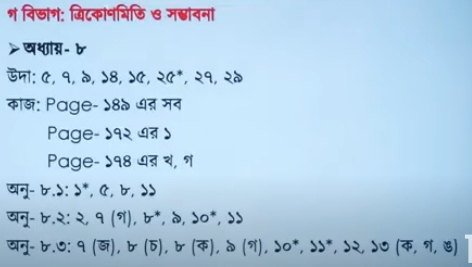 গ বিভাগ: ত্রিকোণমিতি ও সম্ভাবনা
➢ অধ্যায়- ৮
উদা: ৫, ৭, ৯, ১৪, ১৫, ২৫*, ২৭, ২৯
কাজ: Page- ১৪৯ এর সব
Page- ১৭২ এর ১
Page- ১৭৪ এর খ, গ
অনু- ৮.১: ১*, ৫, ৮, ১১
অনু- ৮.২: ২, ৭ (গ), ৮*, ৯, ১০*, ১১
অনু- ৮.৩: ৭ (জ), ৮ (চ), ৮ (ক), ৯ (গ), ১০*, ১১*, ১২, ১৩ (ক, গ, ঙ)